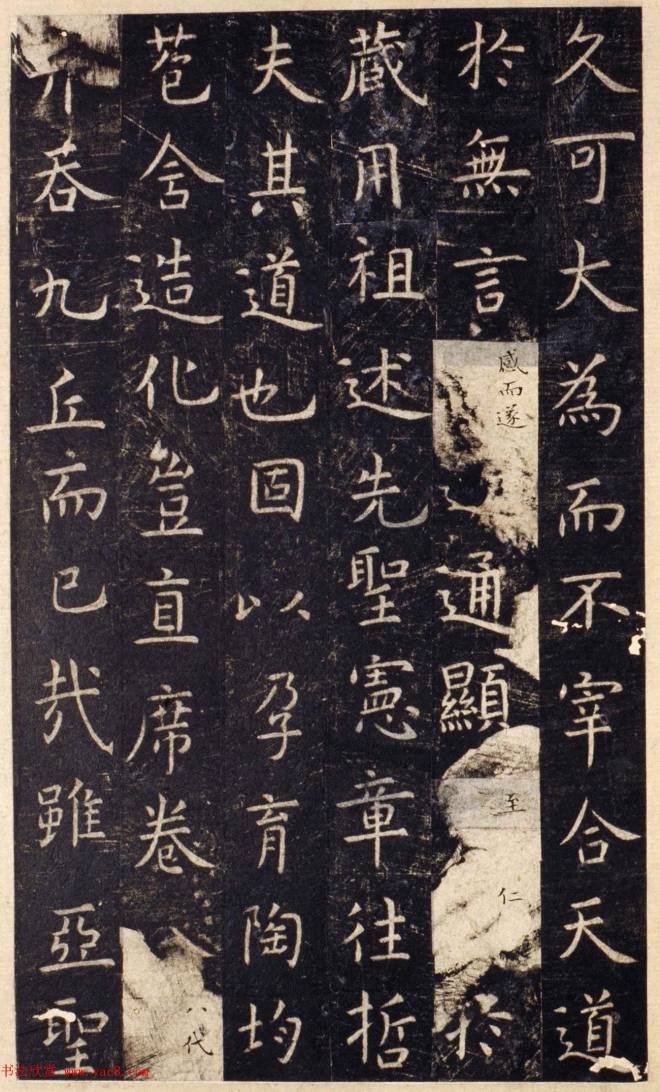 久可大為而不宰合天道
於無言感而遂通顯至仁於
藏用祖述先聖憲章往哲
夫其道也固以孕育陶均
苞含造化豈直席卷八代
并吞九丘而已哉雖亞聖
书法欣赏 www.yac8.com